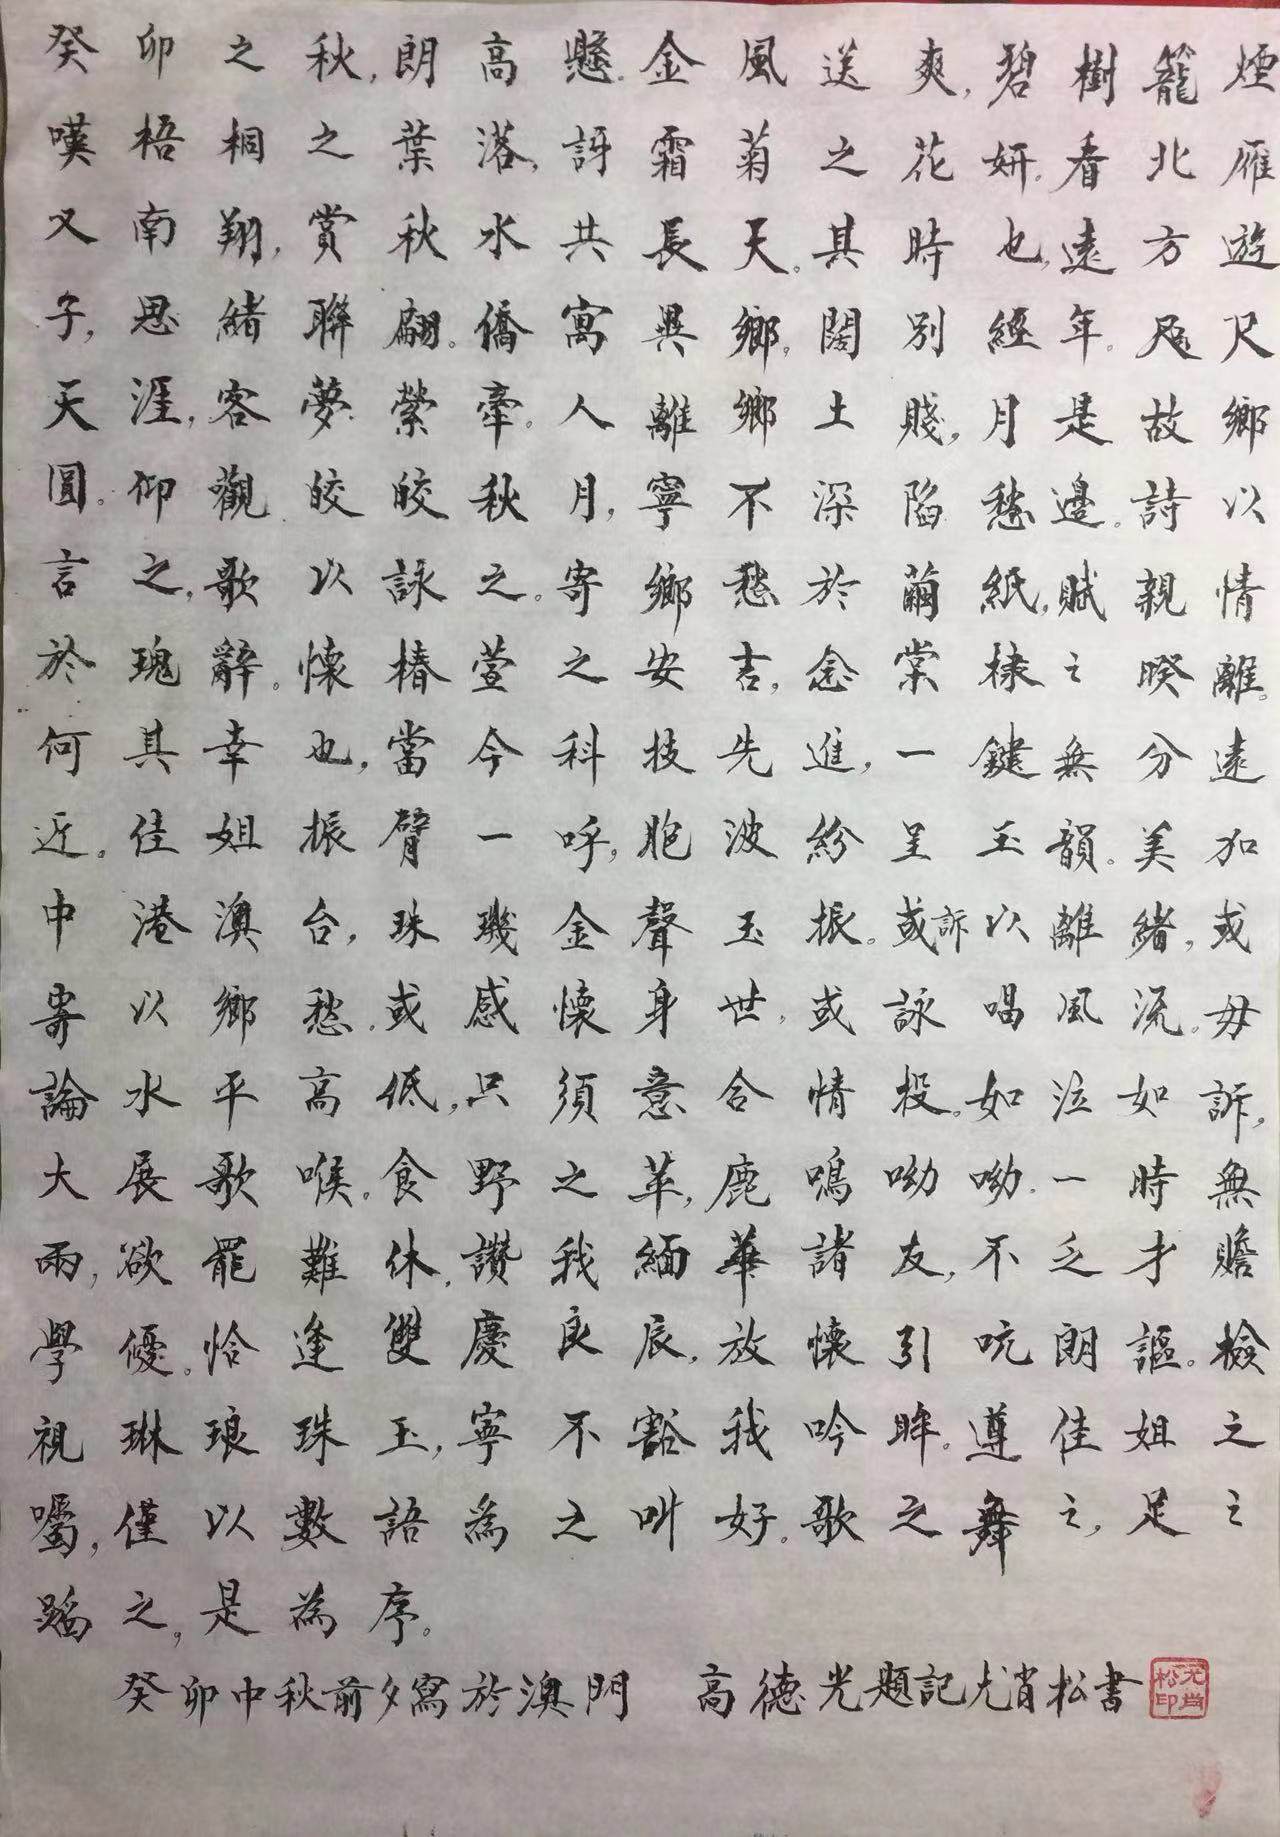 癸卯之秋,朗高懸。金風送爽,碧樹籠煙
嘆梧桐之葉落,訝霜菊之花妍。看北雁
又南翔,賞秋水共長天。其時也,遠方遊
子,思緒聯翩。僑寓異鄉,闊別經年。咫尺
天涯,客夢縈牽。人離鄉土賤,月是故鄉
圓。仰觀皎皎秋月,寧不深陷愁邊。詩以
言之,歌以詠之。寄鄉愁於繭紙,賦親情
於瑰辭。懷椿萱之安吉,念棠棣之暌離。
何其幸也,當今科技先進,一鍵無分遠
近。佳姐振臂一呼,胞波紛呈玉韻。美加
中港澳台,珠璣金聲玉振。或訴以離緒,或
寄以鄉愁。或感懷身世,或詠唱風流。毋
論水平高低,只須意合情投。如泣如訴,
大展歌喉。食野之苹,鹿鳴呦呦。一時無
兩,欲罷難休。讚我緬華諸友,不乏才贍
學優。恰逢雙慶良辰,放懷引吭朗謳。檢
視琳琅珠玉,寧不豁我吟眸。遵佳姐之
囑,僅以數語為之叫好。歌之舞之,足之
蹈之,是為序。
癸卯中秋前夕寫於澳門 高德光題記尤肖松書
尤肖松印